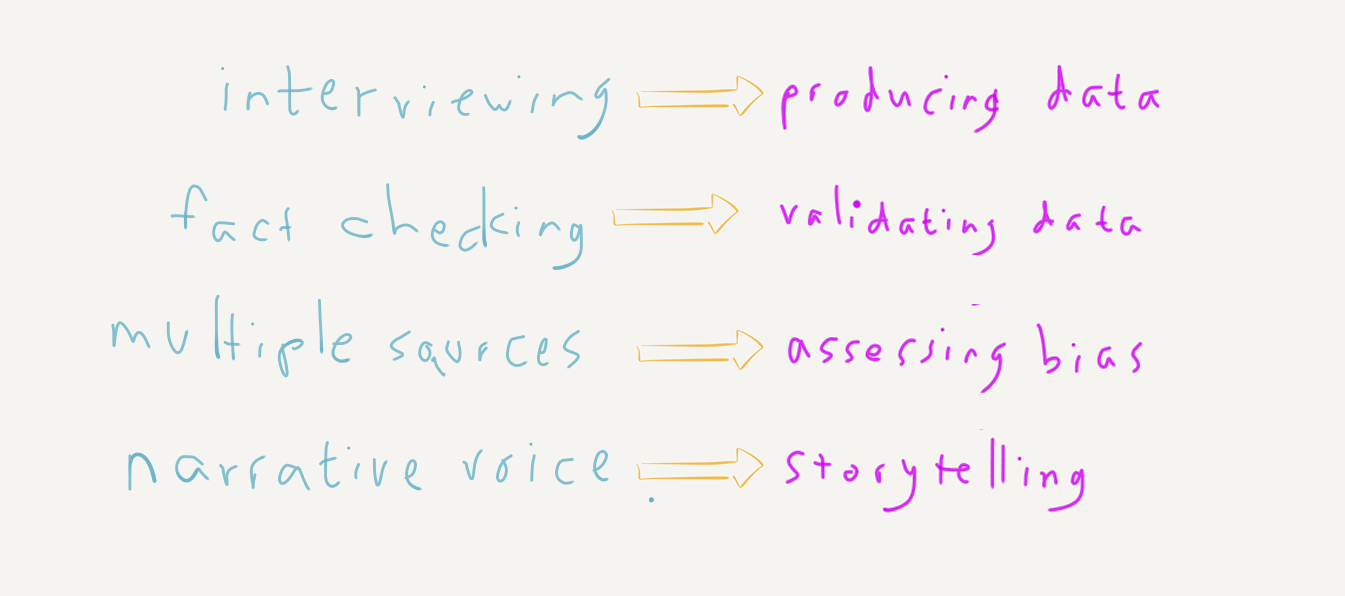 interviewing producing data
fact checking validating data
multiple sources assessing bias
narrative voice storytelling